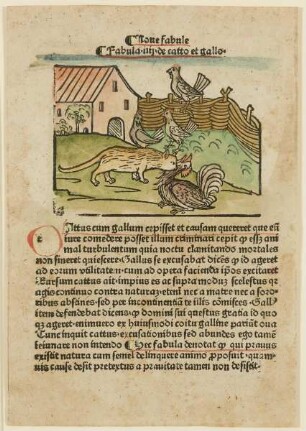 Noue fabule
Fabula .iiij. de catto et gallo.
Cattus cum gallum cepisset et causam quereret que eũ
iure comedere posset illum criminari cepit ꝙ esset ani
mal turbulentum quia noctu clamitando mortales
non sineret quiescere. Gallus se excusabat dicens ꝙ id ageret
ad eorum vtilitatẽ nam cum ad opera facienda ipõs excitaret
Rursum cattus ait impius es ac scelestus qr
agis continuo contra naturaʒ etenĩ nec a matre nec a soro-
ribus abstines, sed per incontinẽtiã te illis cõmisces. Gall'
itẽ defendebat dicens ꝙ domini sui questus gratia id quo
qʒ ageret huiusmodi coitu galline oua
Tunc inquit cattus excusationibus sed abundes ego tamẽ
ieiunare non intendo Hec fabula denotat ꝙ qui prauus
existit natura cum semel delinquere animo ꝓposuit quam
uis cause desit pretextus a prauitate tamen non desistit.